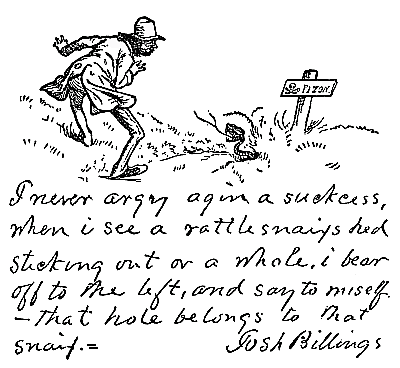 PIZON.
I never argy agin a suckcess,
when i see a rattlesnaix's hed
sticking out ov a whole, i bear
off to the left, and say to miself
– that hole belongs to that
snaix.= Josh Billings